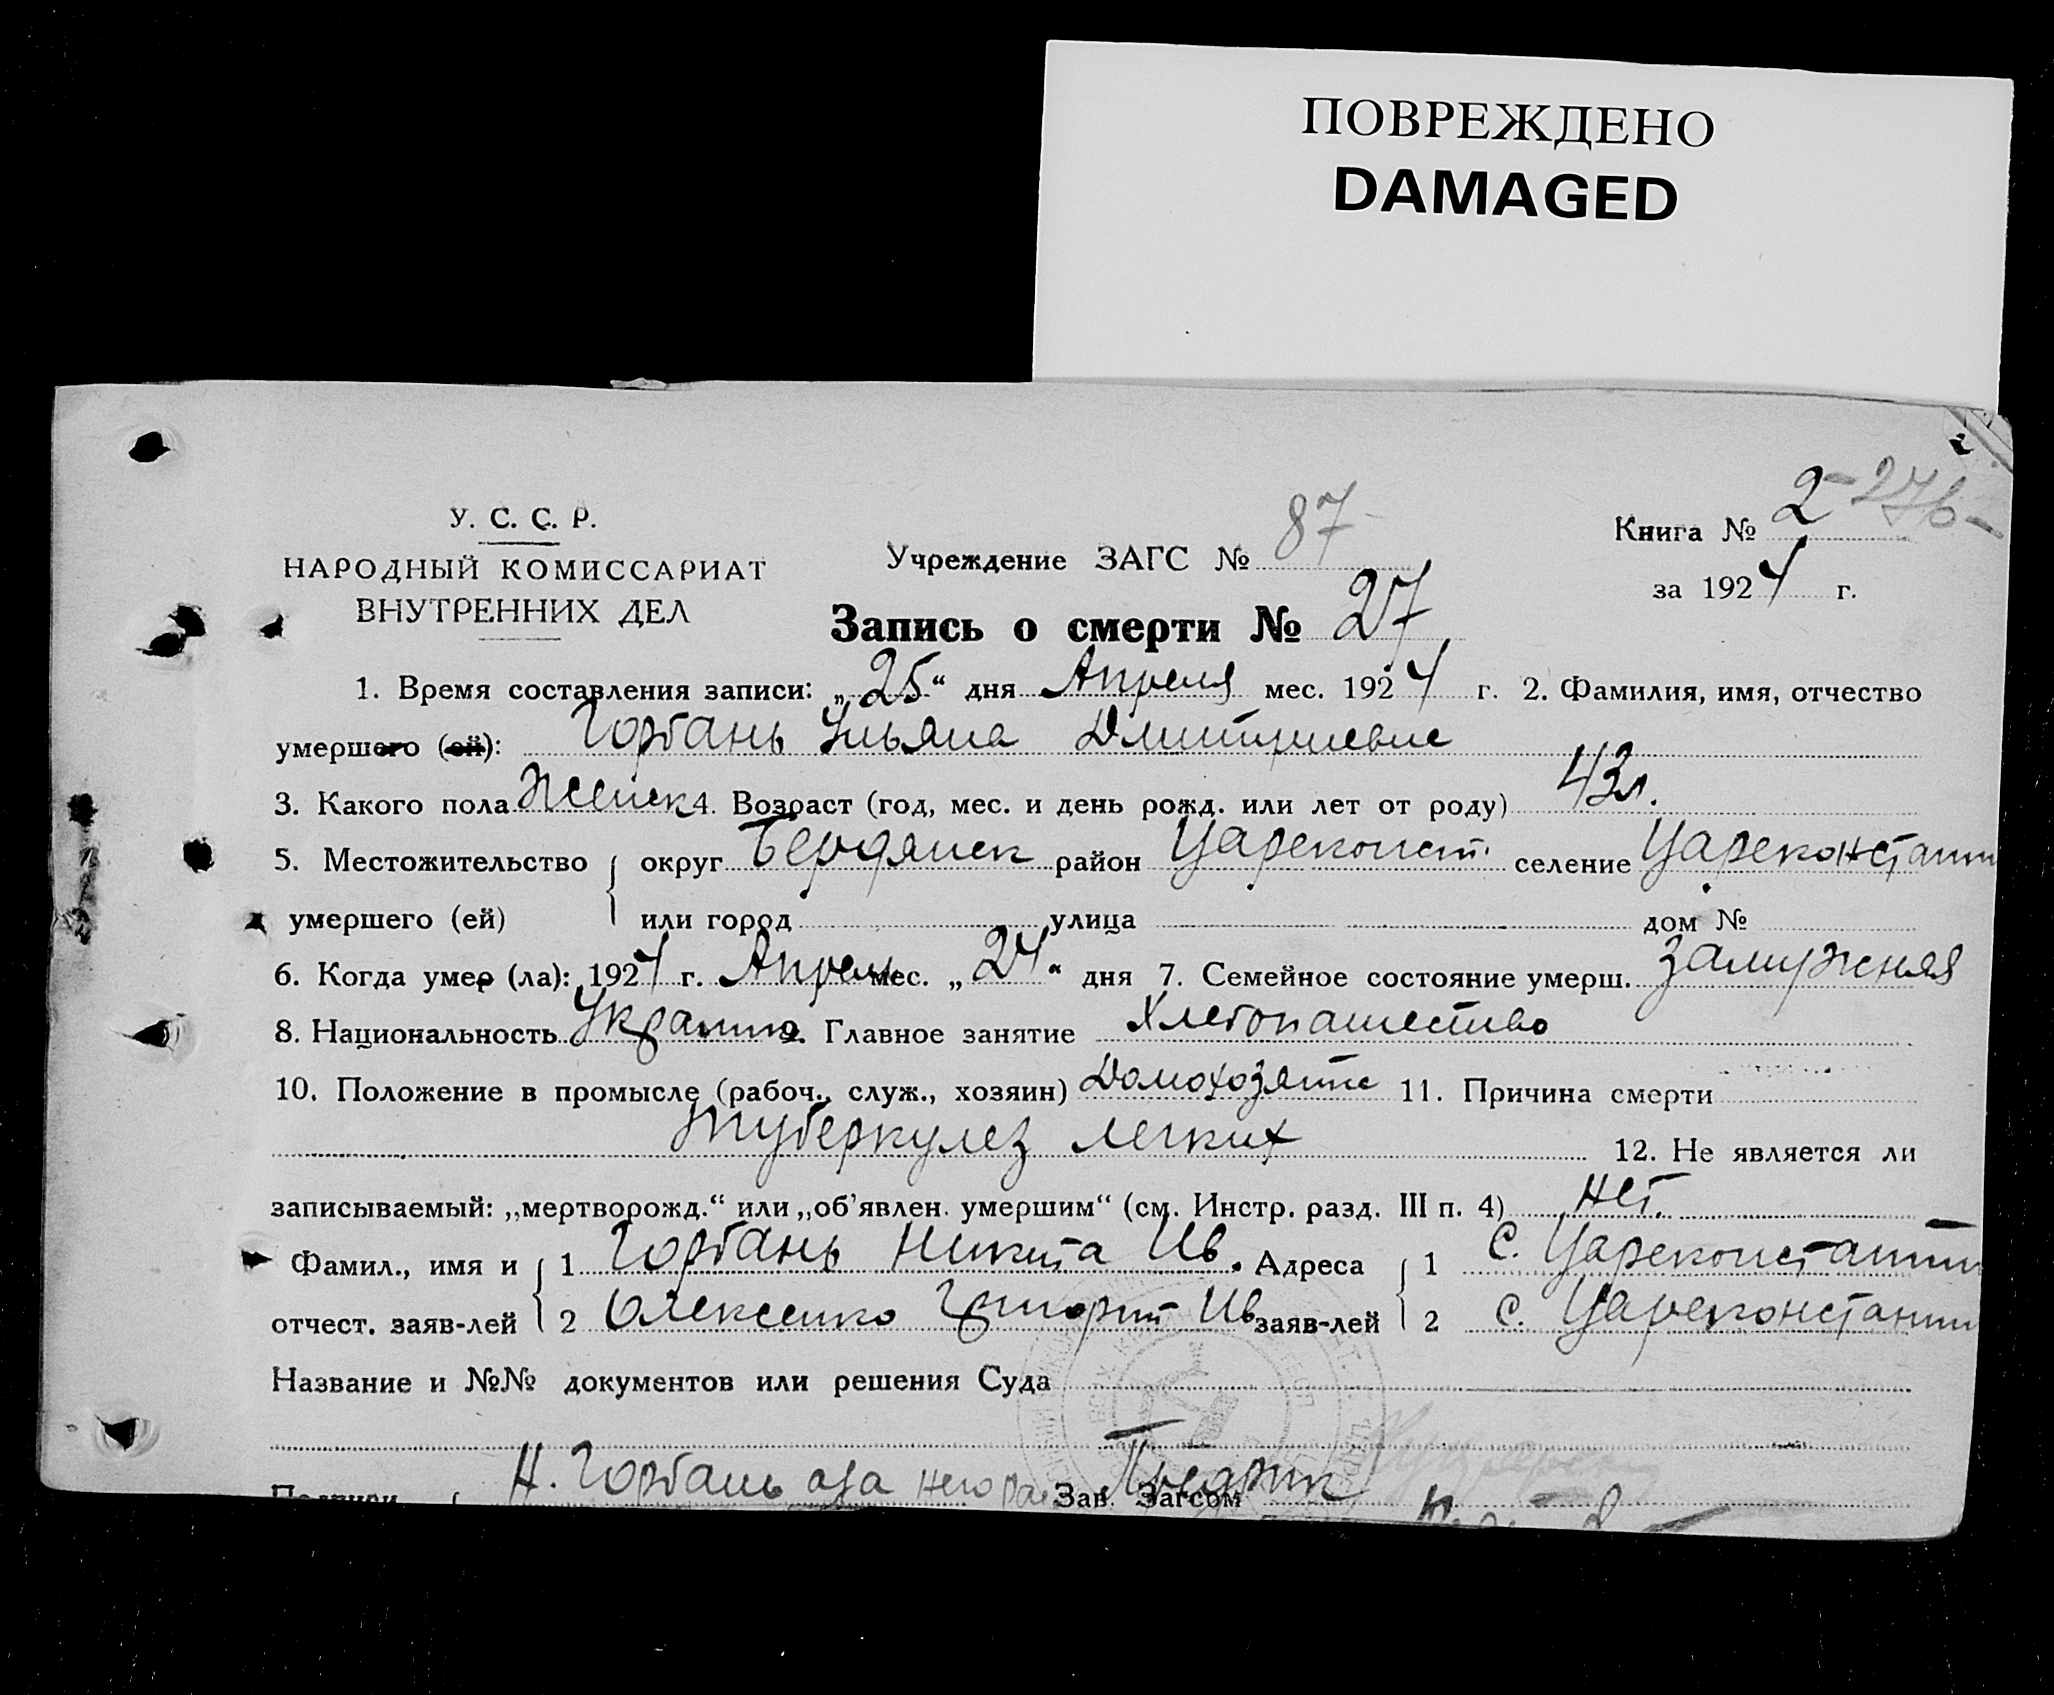 ПОВРЕЖДЕНО
DAMAGED
У. С. С. Р.
НАРОДНЫЙ КОМИССАРИАТ
ВНУТРЕННИХ ДЕЛ
Учреждение ЗАГС № 87
Книга № 2
за 1924 г.
Запись о смерти № 27
1. Время составления записи: „25“ дня Апреля мес. 1924 г. 2. Фамилия, имя, отчество
умершего (ей): Горбань Ульяна Дмитриевне
3. Какого пола Женск 4. Возраст (год, мес. и день рожд. или лет от роду) 43 л.
5. Местожительство округ Бердянск район Цареконст. селение Цареконстантин
умершего (ей) или город улица дом №
6. Когда умер (ла): 1924 г. Апрель мес. „24“ дня 7. Семейное состояние умерш. замужняя
8. Национальность Украинка 9. Главное занятие Хлебопашество
10. Положение в промысле (рабоч., служ., хозяин) 11. Причина смерти
туберкулез легких 12. Не является ли
записываемый: „мертворожд.“ или „об'явлен. умершим“ (см. Инстр. разд. III п. 4) нет.
Фамил., имя и 1 Горбань Никита Ив. Адреса 1 с. Цареконстантин
отчест. заяв-лей 2 Олексенко Григорий Ив заяв-лей 2 с. Цареконстантин
Название и №№ документов или решения Суда
Подписи Н. Горбань а за него Зав. Загсом